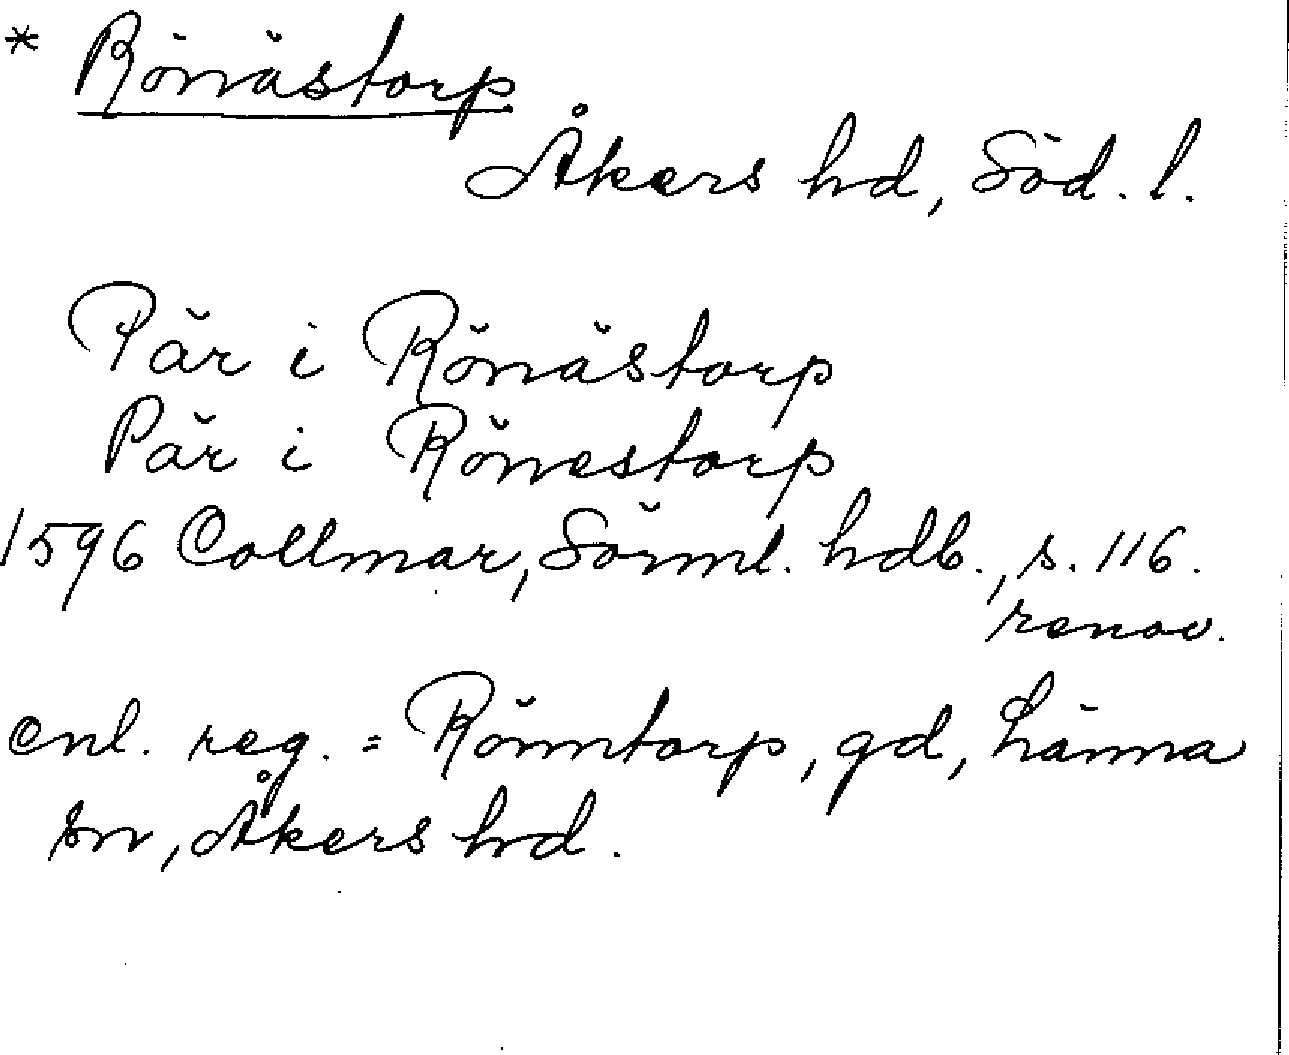 * Rönästorp
Åkers hd, Söd. l.
Pär i Rönästorp
Pär i Rönestorp
1596 Collmar, Sörml. hdb., s. 116.
renov.
enl. reg. = Rönntorp, gd, Länna
sn, Åkers hd.